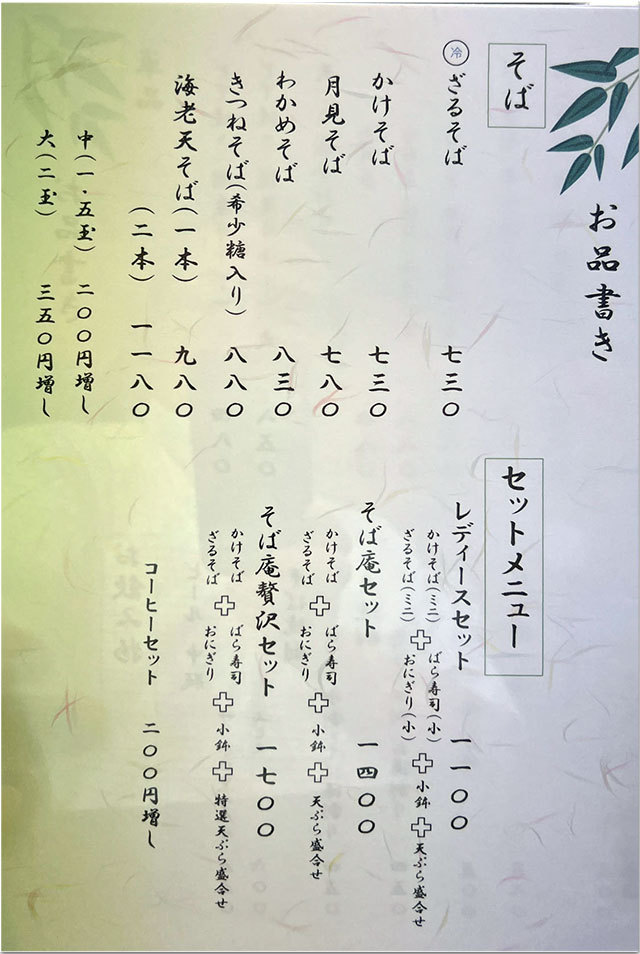 お品書き
そば
冷 ざるそば 七三〇
かけそば 七三〇
月見そば 七八〇
わかめそば 八三〇
きつねそば(希少糖入り) 八八〇
海老天そば(一本) 九八〇
(二本) 一一八〇
中(一・五玉) 二〇〇円増し
大(二玉) 三五〇円増し
セットメニュー
レディースセット 一一〇〇
かけそば(ミニ) ばら寿司(小)
ざるそば(ミニ) おにぎり(小) 小鉢 天ぷら盛合せ
そば庵セット 一四〇〇
かけそば ばら寿司
ざるそば おにぎり 小鉢 天ぷら盛合せ
そば庵贅沢セット 一七〇〇
かけそば ばら寿司
ざるそば おにぎり 小鉢 特選天ぷら盛合せ
コーヒーセット 二〇〇円増し